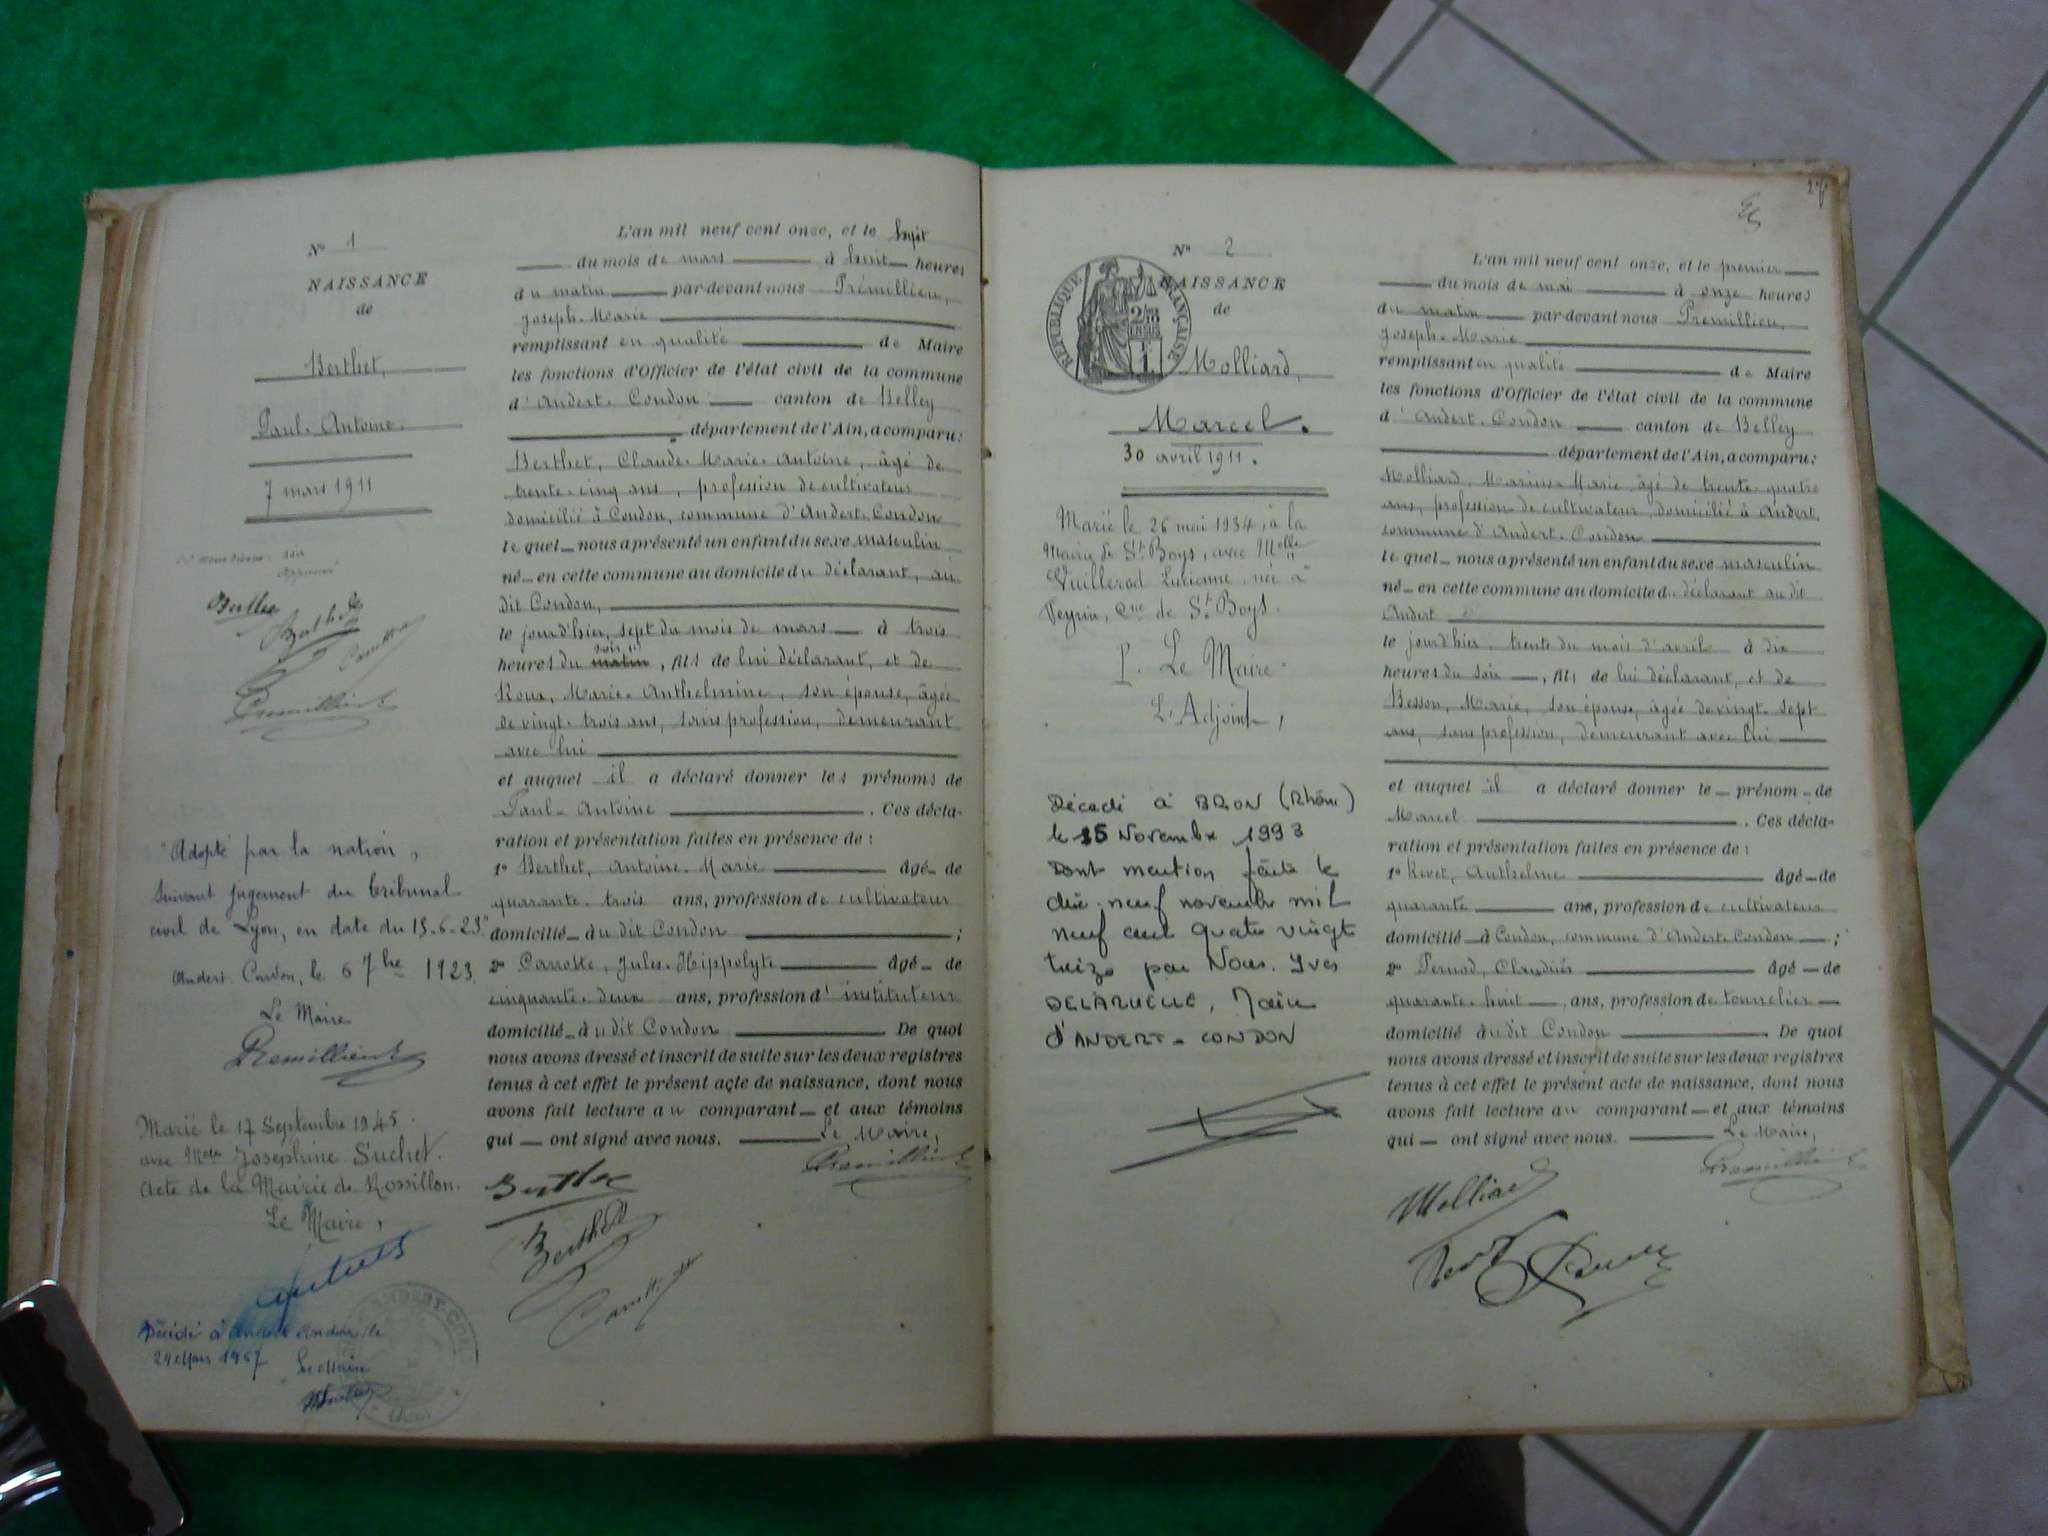 N° 1
NAISSANCE
de
Berthet,
Paul-Antoine.
7 mars 1911
soir
Approuvé
Berthet
Berthet
Carrotte
Premillieu
"Adopté par la nation,
suivant jugement du tribunal
civil de Lyon, en date du 15-6-23"
Andert-Condon, le 6 7bre 1923
Le Maire
Premillieu
Marié le 17 Septembre 1945
avec Melle Josephine Suchet.
Acte de la Mairie de Rossillon.
Le Maire,
Décédé à Andert-Condon le
24 Mars 1967
Le Maire
L'an mil neuf cent onze, et le huit
du mois de mars à huit heures
du matin par-devant nous Prémillieu,
Joseph-Marie
remplissant en qualité de Maire
les fonctions d'Officier de l'état civil de la commune
d'Andert-Condon canton de Belley
département de l'Ain, a comparu:
Berthet, Claude-Marie-Antoine, âgé de
trente-cinq ans, profession de cultivateur
domicilié à Condon, commune d'Andert-Condon
lequel nous a présenté un enfant du sexe masculin
né en cette commune au domicile du déclarant, au
dit Condon,
le jourd'hier, sept du mois de mars à trois
soir
heures du matin, fils de lui déclarant, et de
Roux, Marie-Anthelmine, son épouse, âgée
de vingt-trois ans, sans profession, demeurant
avec lui
et auquel il a déclaré donner les prénoms de
Paul-Antoine . Ces décla-
ration et présentation faites en présence de:
1° Berthet, Antoine-Marie âgé de
quarante-trois ans, profession de cultivateur
domicilié au dit Condon ;
2° Carrotte, Jules-Hippolyte âgé de
cinquante-deux ans, profession d'instituteur
domicilié au dit Condon De quoi
nous avons dressé et inscrit de suite sur les deux registres
tenus à cet effet le présent acte de naissance, dont nous
avons fait lecture au comparant et aux témoins
qui ont signé avec nous. Le Maire,
Premillieu
Berthet
Berthet
Carrotte
N° 2
NAISSANCE
de
RÉPUBLIQUE FRANÇAISE
Molliard,
Marcel.
30 avril 1911.
Marié le 26 mai 1934, à la
Mairie de St Boys, avec Melle
Vuillerod Lucienne, née à
Veyrin, Cne de St Boys.
P. Le Maire
L'Adjoint,
Décédé à BRON (Rhône)
le 15 Novembre 1993
Dont mention faite le
dix-neuf novembre mil
neuf cent quatre vingt
treize par Nous. Yves
DELARUELLE, Maire
d'ANDERT-CONDON
L'an mil neuf cent onze, et le premier
du mois de mai à onze heures
du matin par-devant nous Prémillieu,
Joseph-Marie
remplissant en qualité de Maire
les fonctions d'Officier de l'état civil de la commune
d'Andert-Condon canton de Belley
département de l'Ain, a comparu:
Molliard, Marius-Marie, âgé de trente-quatre
ans, profession de cultivateur, domicilié à Andert
commune d'Andert-Condon
lequel nous a présenté un enfant du sexe masculin
né en cette commune au domicile du déclarant au dit
Andert
le jourd'hier, trente du mois d'avril à dix
heures du soir, fils de lui déclarant, et de
Besson, Marie, son épouse, âgée de vingt-sept
ans, sans profession, demeurant avec lui
et auquel il a déclaré donner le prénom de
Marcel . Ces décla-
ration et présentation faites en présence de:
1° Rivet, Anthelme âgé de
quarante ans, profession de cultivateur
domicilié à Condon, commune d'Andert-Condon ;
2° Pernod, Claudius âgé de
quarante-huit ans, profession de tonnelier
domicilié au dit Condon De quoi
nous avons dressé et inscrit de suite sur les deux registres
tenus à cet effet le présent acte de naissance, dont nous
avons fait lecture au comparant et aux témoins
qui ont signé avec nous. Le Maire,
Premillieu
Molliard